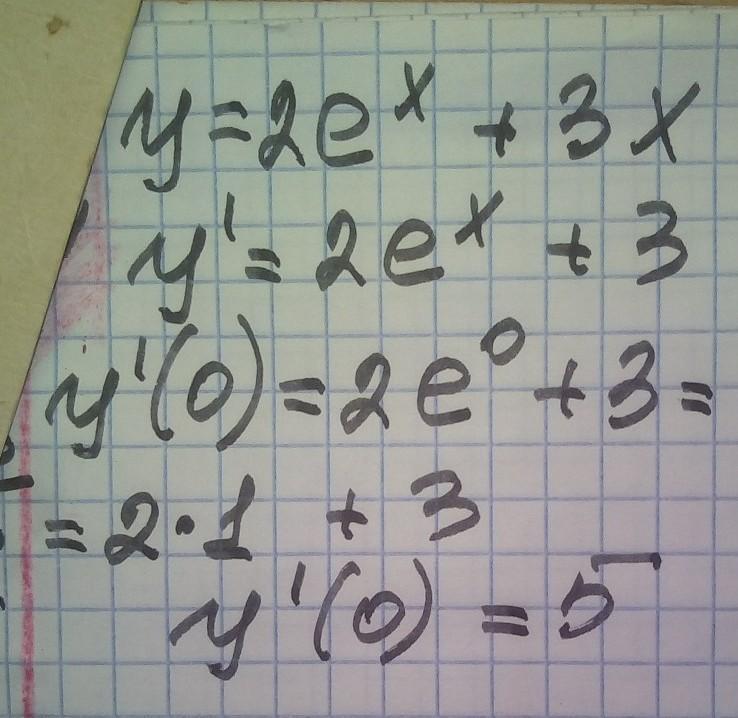 y = 2eˣ + 3x
y' = 2eˣ + 3
y'(0) = 2e⁰ + 3 =
= 2·1 + 3
y'(0) = 5